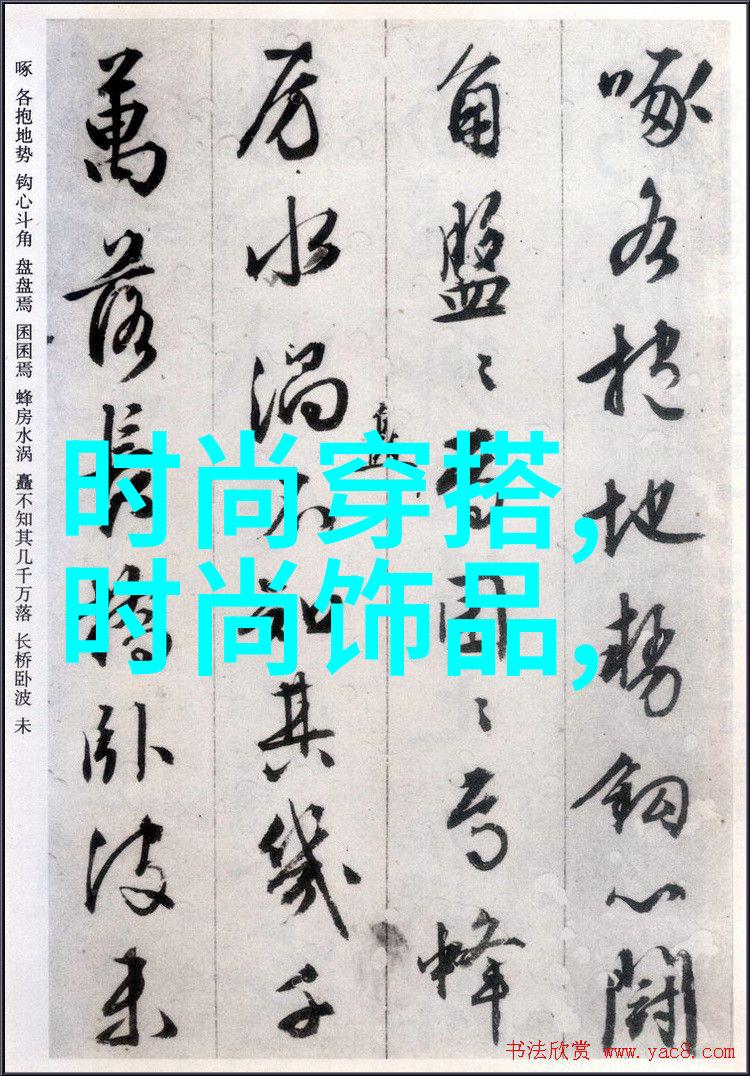 啄各抱地势钩心斗
角盘〻焉囷〻焉蜂
房水涡矗不知其几千
万落长桥卧波未
啄 各抱地势 钩心斗角 盘盘焉 囷囷焉 蜂房水涡 矗不知其几千万落 长桥卧波 未
时尚穿搭,
时尚饰品,
书法欣赏 www.yac8.com